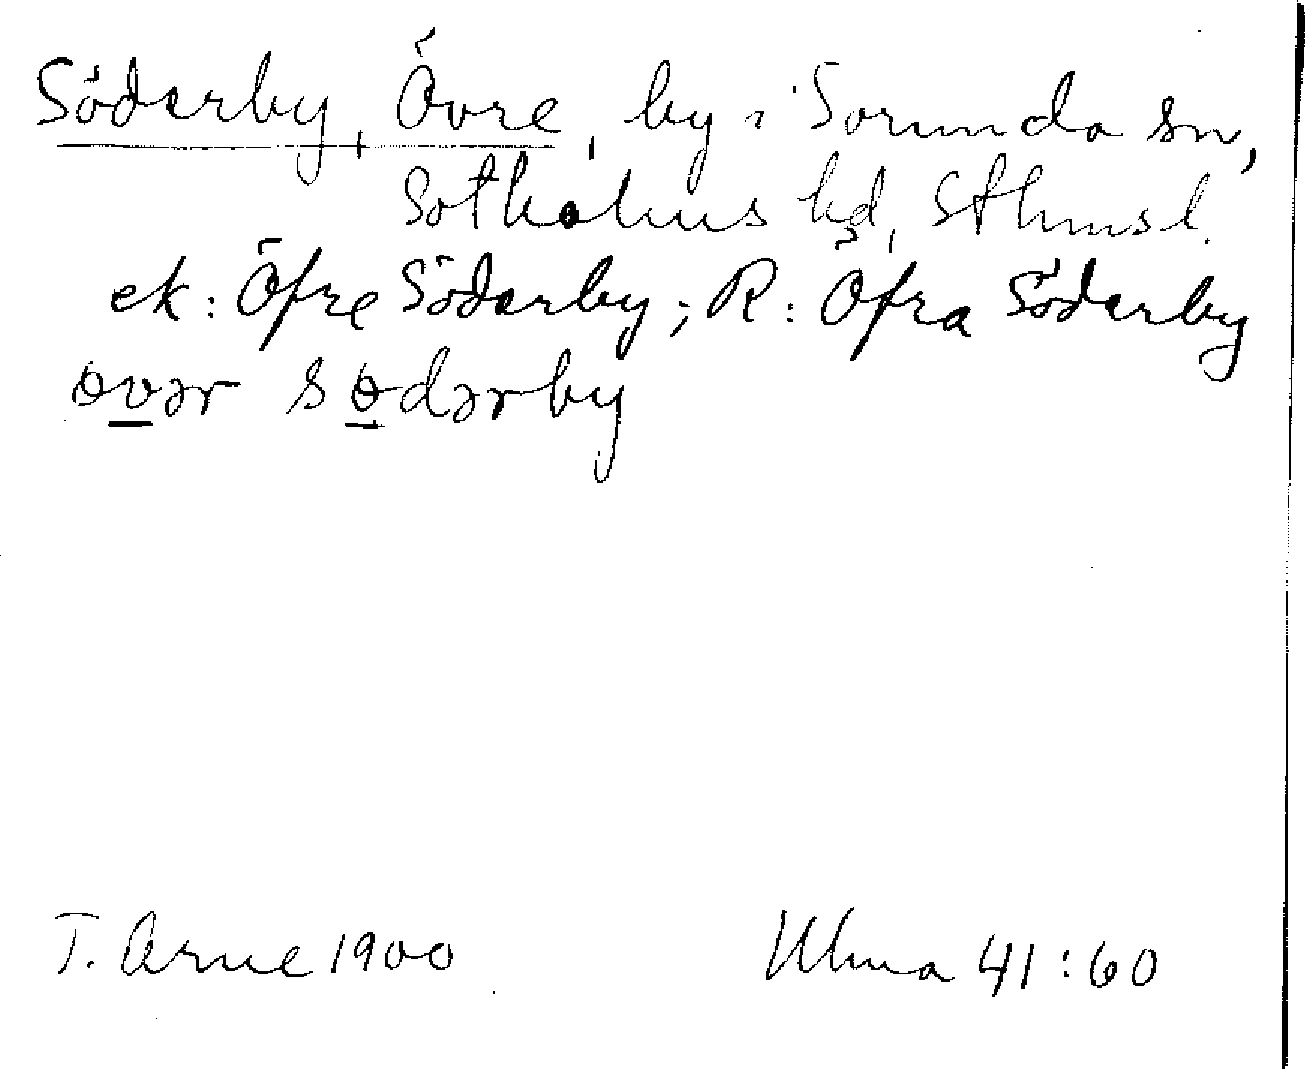 Söderby, Övre, by i Sorunda sn,
Sotholms hd, Sthmsl.
ek: Öfre Söderby; R: Öfra Söderby
ɵvər sɵdərby
T. Arne 1900 Ulma 41:60